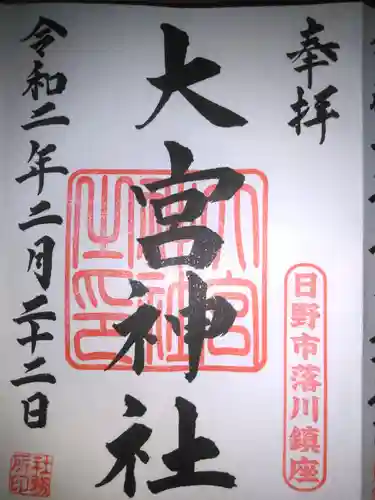 奉拝
日野市落川鎮座
大宮神社
大宮神社之印
令和二年二月二十二日
社務所印